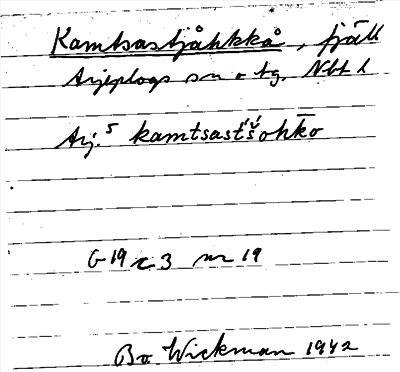 Kamtsastjåhkkå, fjäll
Arjeplogs sn o tg. Nbt l
Arj.5 kamtsast́š́ohk̄o
G 19 c 3 nr 19
Bo Wickman 1942